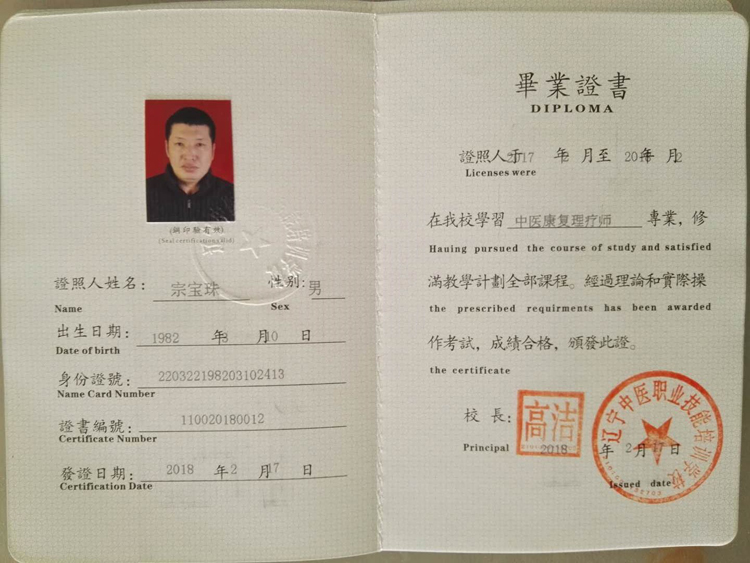 (鋼印驗有效)
(Seal certifications Ref)
證照人姓名: 宗宝珠 性别: 男
Name Sex
出生日期: 1982 年 3 月 10 日
Date of birth
身份證號: 220322198203102413
Name Card Number
證書編號: 110020180012
Certificate Number
發證日期: 2018 年 2 月 17 日
Certification Date
畢業證書
DIPLOMA
證照人于 2017 年 月至 20 年 月 2
Licenses were
在我校學習 中医康复理疗师 專業，修
Hauing pursued the course of study and satisfied
滿教學計劃全部課程。經過理論和實際操
the prescribed requirments has been awarded
作考試，成績合格，頒發此證。
the certificate
校長: 高洁
Principal 2018 年 2 月 17 日
Issued date
辽宁中医职业技能培训学校